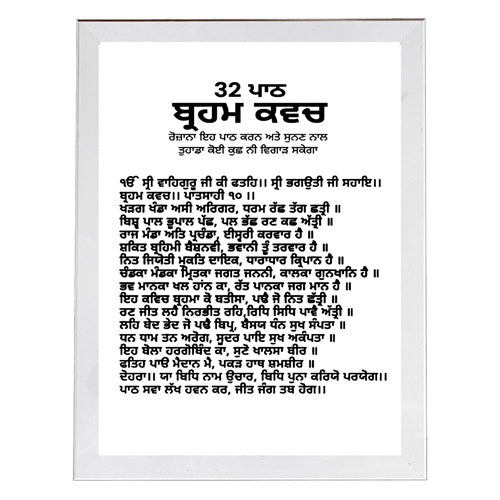 32 ਪਾਠ
ਬ੍ਰਹਮ ਕਵਚ
ਰੋਜ਼ਾਨਾ ਇਹ ਪਾਠ ਕਰਨ ਅਤੇ ਸੁਨਣ ਨਾਲ
ਤੁਹਾਡਾ ਕੋਈ ਕੁਛ ਨੀ ਵਿਗਾੜ ਸਕੇਗਾ
ੴ ਸ੍ਰੀ ਵਾਹਿਗੁਰੂ ਜੀ ਕੀ ਫਤਹਿ।। ਸ੍ਰੀ ਭਗਉਤੀ ਜੀ ਸਹਾਇ।।
ਬ੍ਰਹਮ ਕਵਚ।। ਪਾਤਸਾਹੀ ੧੦ ।।
ਖੜਗ ਖੰਡਾ ਅਸੀ ਅਰਿਗਰ, ਧਰਮ ਰੱਛ ਤੱਗ ਛਤ੍ਰੀ ।
ਬਿਸ੍ਵ ਪਾਲ ਭੂਪਾਲ ਪੱਛ, ਪਲ ਭੱਛ ਰਣ ਕਛ ਅੱਤ੍ਰੀ ॥
ਰਾਜ ਮੰਡਾ ਅਤਿ ਪ੍ਰਚੰਡਾ, ਈਸੂਰੀ ਕਰਵਾਰ ਹੈ ।
ਸ਼ਕਿਤ ਬ੍ਰਹਿਮੀ ਬੈਸ਼ਨਵੀ, ਭਵਾਨੀ ਤੂੰ ਤਰਵਾਰ ਹੈ ॥
ਨਿਤ ਜਿਯੋਤੀ ਮੁਕਤਿ ਦਾਇਕ, ਧਾਰਾਧਾਰ ਕ੍ਰਿਪਾਨ ਹੈ ।
ਚੰਡਕਾ ਮੰਡਕਾ ਮ੍ਰਿਤਕਾ ਜਗਤ ਜਨਨੀ, ਕਾਲਕਾ ਗੁਨਖਾਨਿ ਹੈ ॥
ਭਵ ਮਾਨਕਾ ਖਲ ਹਾਂਨ ਕਾ, ਰੱਤ ਪਾਨਕਾ ਜਗ ਮਾਨ ਹੈ ।
ਇਹ ਕਵਿਚ ਬ੍ਰਹਮਾ ਕੋ ਬਤੀਸਾ, ਪਢੈ ਜੋ ਨਿਤ ਛੱਤ੍ਰੀ ॥
ਰਣ ਜੀਤ ਲਹੈ ਨਿਰਭੀਤ ਰਹਿ,ਰਿਧਿ ਸਿਧਿ ਪਾਵੈ ਅੱਤ੍ਰੀ ।
ਲਹਿ ਬੇਦ ਭੇਦ ਜੋ ਪਢੈ ਬਿਪ੍ਰ, ਬੈਸਯ ਧੰਨ ਸੁਖ ਸੰਪਤਾ ॥
ਧਨ ਧਾਮ ਤਨ ਅਰੋਗ, ਸੂਦਰ ਪਾਇ ਸੁਖ ਅਕੰਪਤਾ ॥
ਇਹ ਬੋਲਾ ਹਰਗੋਬਿੰਦ ਕਾ, ਸੁਣੋ ਖਾਲਸਾ ਬੀਰ ॥
ਫਤਿਹ ਪਾਓ ਮੈਦਾਨ ਮੈ, ਪਕੜ ਹਾਥ ਸ਼ਮਸ਼ੀਰ ॥
ਦੋਹਰਾ।। ਯਾ ਬਿਧਿ ਨਾਮ ਉਚਾਰ, ਬਿਧਿ ਪੁਨਾ ਕਰਿਯੋ ਪਰਯੋਗ।।
ਪਾਠ ਸਵਾ ਲੱਖ ਹਵਨ ਕਰ, ਜੀਤ ਜੰਗ ਤਬ ਹੋਗ।।